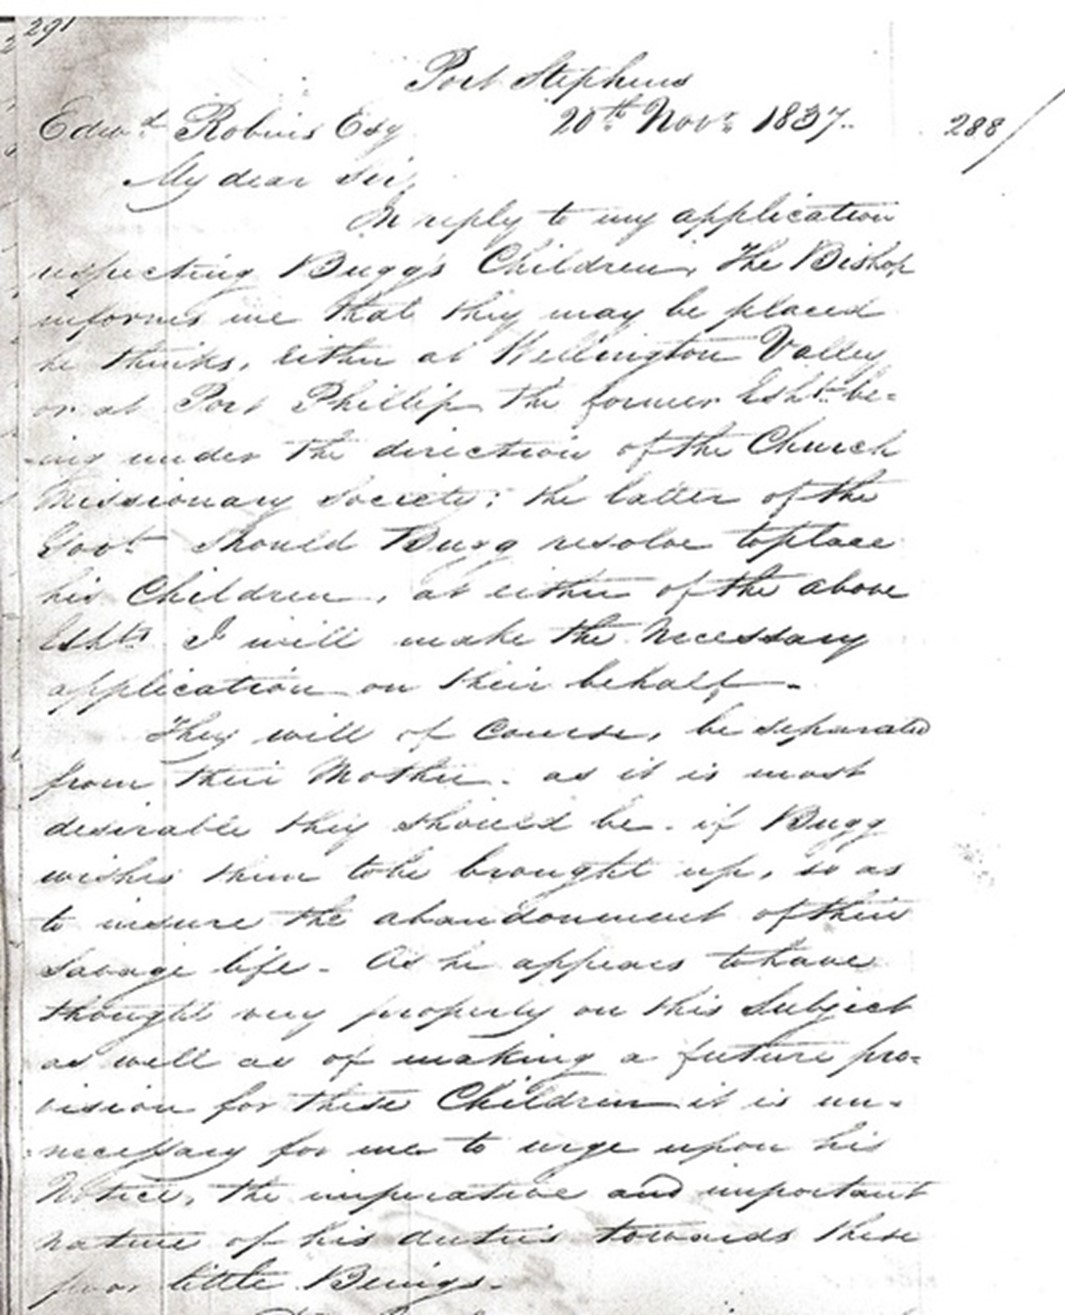 291
Port Stephens
Edwd. Robins Esq 20th. Novr. 1837. 288
My dear Sir,
In reply to my application
respecting Bugg's Children, The Bishop
informs me that they may be placed
he thinks, either at Wellington Valley
or at Port Phillip the former Esht. be-
-ing under the direction of the Church
Missionary Society; the latter of the
Govt. Should Bugg resolve to place
his Children, at either of the above
Eshts I will make the necessary
application on their behalf.-
They will of course, be separated
from their Mother. as it is most
desirable they should be. if Bugg
wishes them to be brought up, so as
to insure the abandonment of their
savage life. As he appears to have
thought very properly on this subject
as well as of making a future pro-
vision for these Children it is un-
necessary for me to urge upon his
Notice, the imperative and important
nature of his duties towards these
poor little Beings.